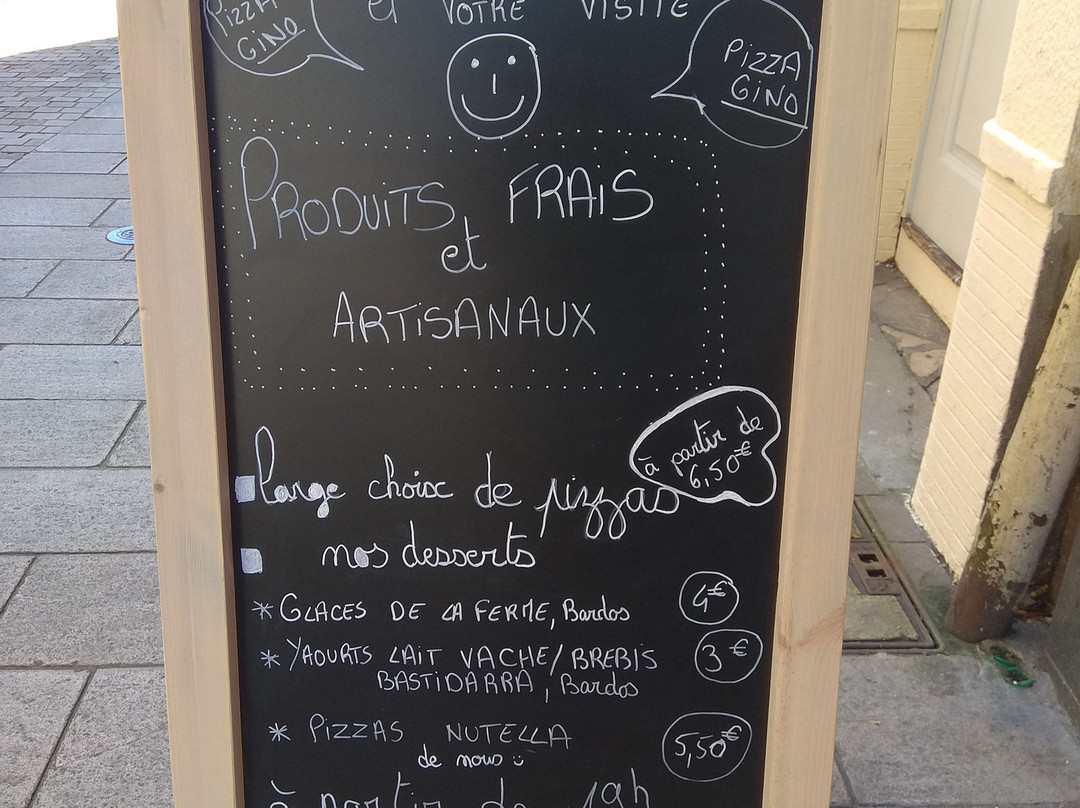 PIZZA
GINO
et VOTRE VISITE
PIZZA
GINO
PRODUITS FRAIS
et
ARTISANAUX
à partir de
6,50€
large choix de pizzas
nos desserts
* GLACES DE LA FERME, Bardos 4€
* YAOURTS LAIT VACHE/BREBIS 3€
BASTIDARRA, Bardos
* PIZZAS NUTELLA 5,50€
de nous
à partir de 19h